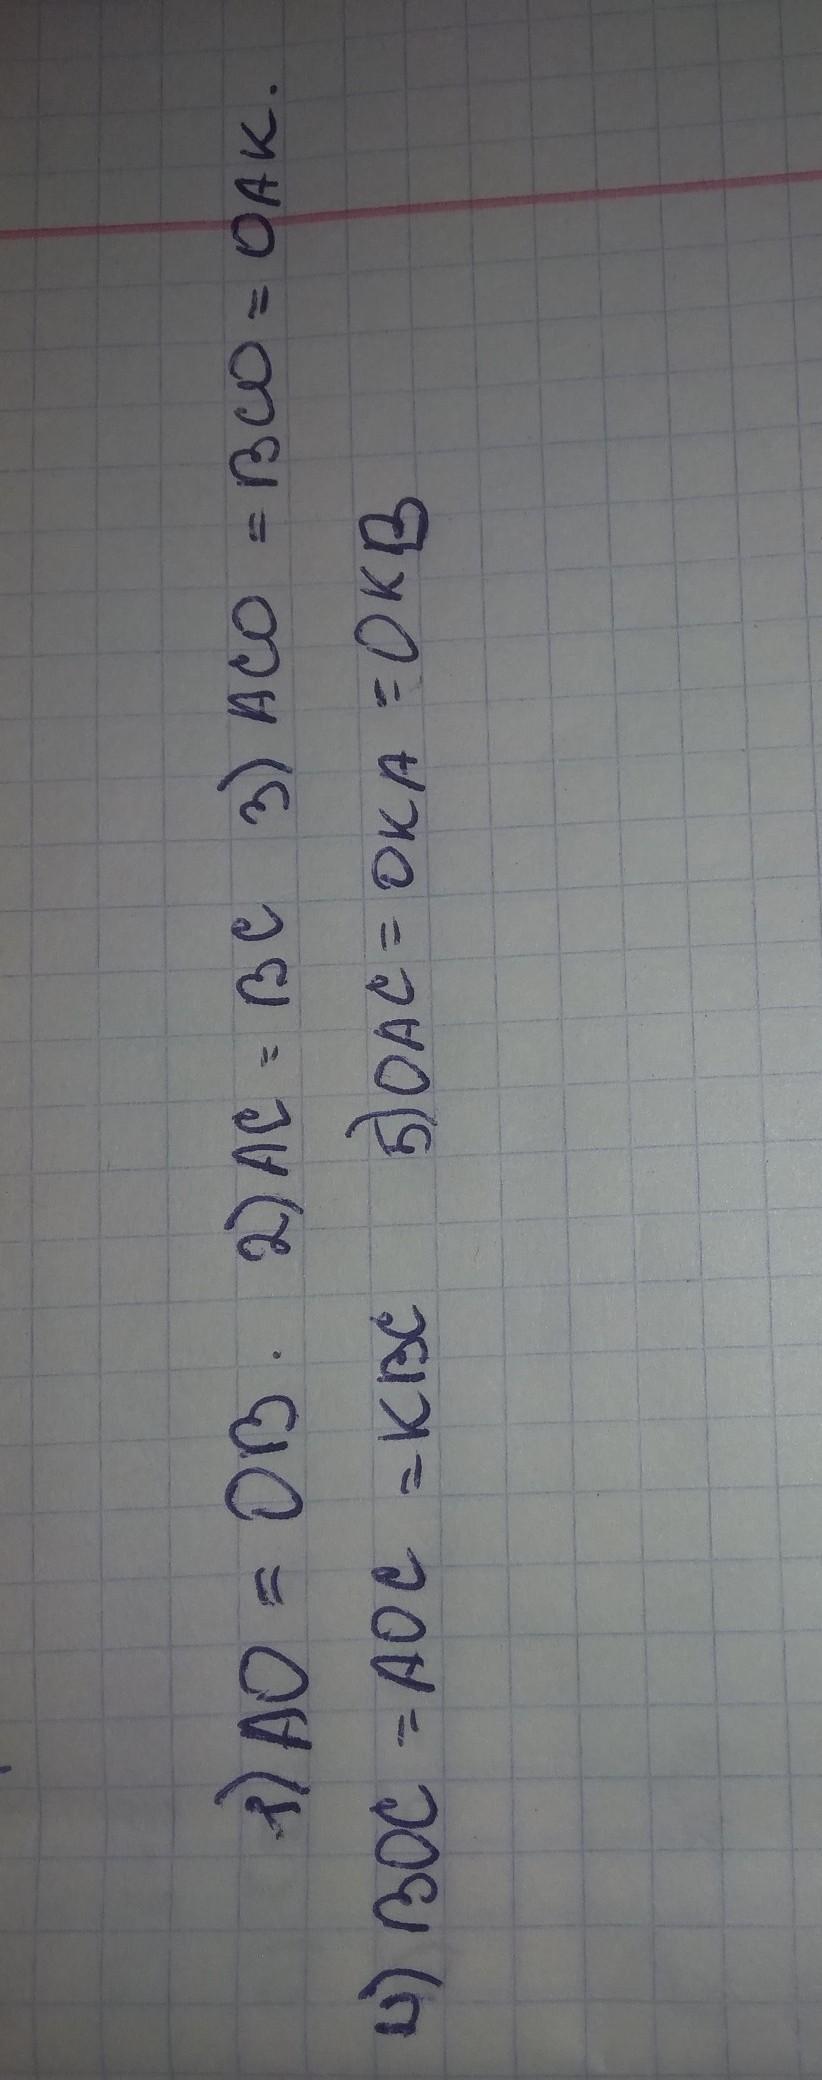 1) AO = OB. 2) AC = BC 3) ACO = BCO = OAK.
4) BOC = AOC = KBC 5) OAC = OKA = OKB